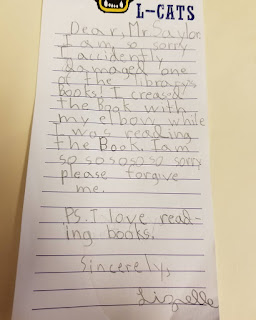 L-CATS
Dear, Mr. Saylor
I am so sorry
I accidently
damaged one
of the library's
books! I creased
the Book with
my elbow while
I was reading
the Book. I am
so so so so so sorry
please forgive
me.
PS. I love read-
ing books.
Sincerely,
Lizelle